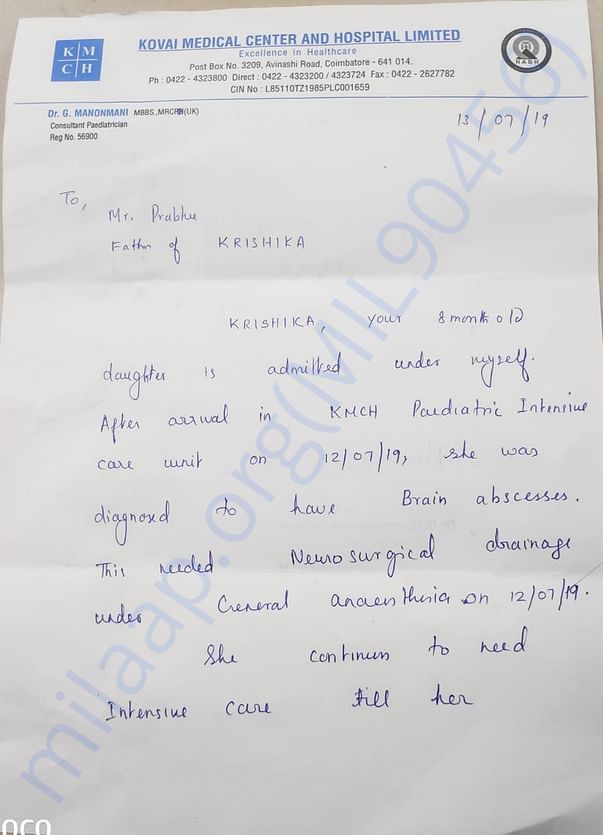 K M
C H
KOVAI MEDICAL CENTER AND HOSPITAL LIMITED
Excellence in Healthcare
Post Box No. 3209, Avinashi Road, Coimbatore - 641 014.
Ph : 0422 - 4323800 Direct : 0422 - 4323200 / 4323724 Fax : 0422 - 2627782
CIN No : L85110TZ1985PLC001659
NABH
Dr. G. MANONMANI MBBS.,MRCPCH(UK)
Consultant Paediatrician
Reg No. 56900
13/07/19
To,
Mr. Prabhu
Father of KRISHIKA
KRISHIKA, your 8 month old
daughter is admitted under myself.
After arrival in KMCH Paediatric Intensive
care unit on 12/07/19, she was
diagnosed to have Brain abscesses.
This needed Neurosurgical drainage
under General anaesthesia on 12/07/19.
She continues to need
Intensive care till her
milaap.org(MIL904556)
OCO